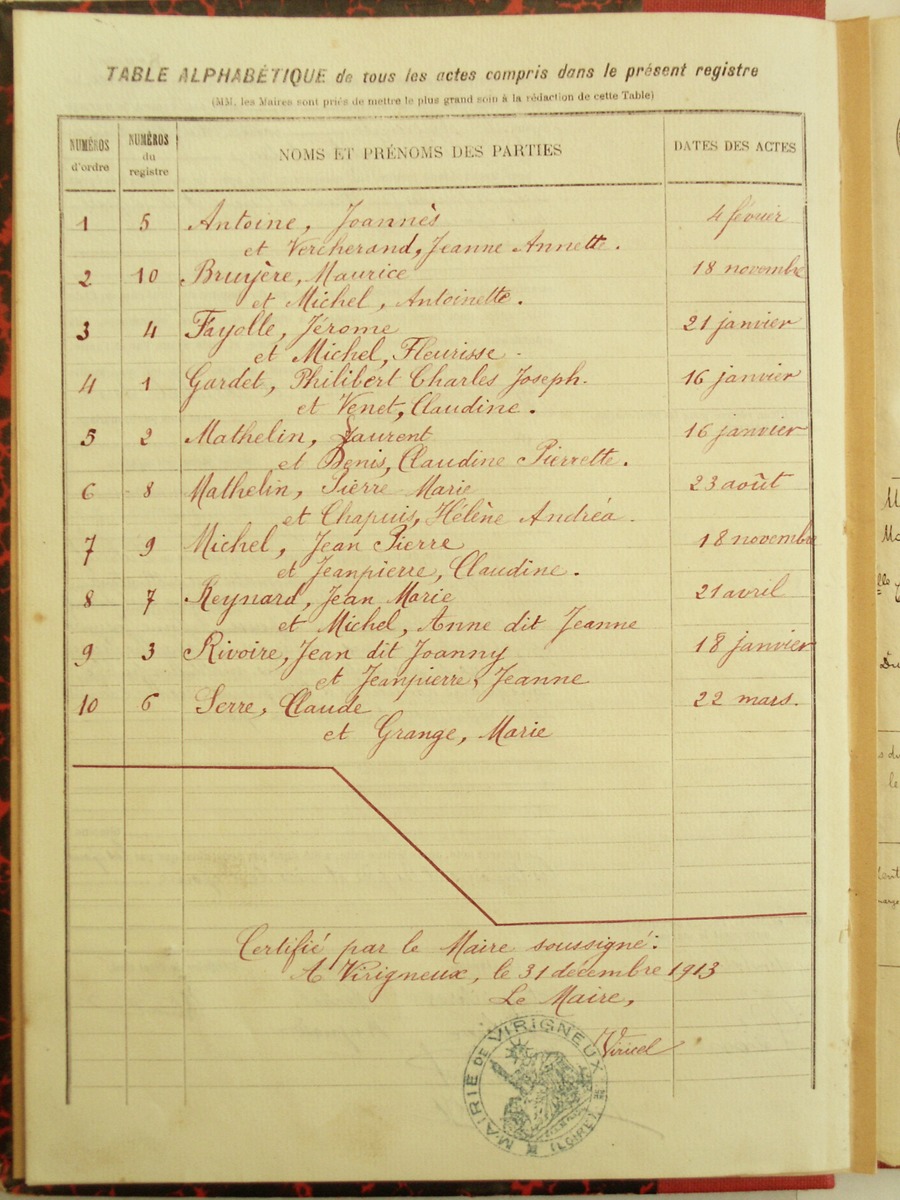 TABLE ALPHABÉTIQUE de tous les actes compris dans le présent registre
(MM. les Maires sont priés de mettre le plus grand soin à la rédaction de cette Table)
NUMÉROS d'ordre NUMÉROS du registre NOMS ET PRÉNOMS DES PARTIES DATES DES ACTES
1 5 Antoine, Joannès 4 février
et Vercherand, Jeanne Annette.
2 10 Bruyère, Maurice 18 novembre
et Michel, Antoinette.
3 4 Fayolle, Jérome 21 janvier
et Michel, Fleurisse.
4 1 Gardet, Philibert Charles Joseph. 16 janvier
et Venet, Claudine.
5 2 Mathelin, Laurent 16 janvier
et Denis, Claudine Pierrette.
6 8 Mathelin, Pierre Marie 23 août
et Chapuis, Hélène Andréa.
7 9 Michel, Jean Pierre 18 novembre
et Jeanpierre, Claudine.
8 7 Reynard, Jean Marie 21 avril
et Michel, Anne dit Jeanne
9 3 Rivoire, Jean dit Joanny 18 janvier
et Jeanpierre, Jeanne
10 6 Serre, Claude 22 mars.
et Grange, Marie
Certifié par le Maire soussigné:
A Virigneux, le 31 décembre 1913
Le Maire,
Viricel
MAIRIE DE VIRIGNEUX (LOIRE)